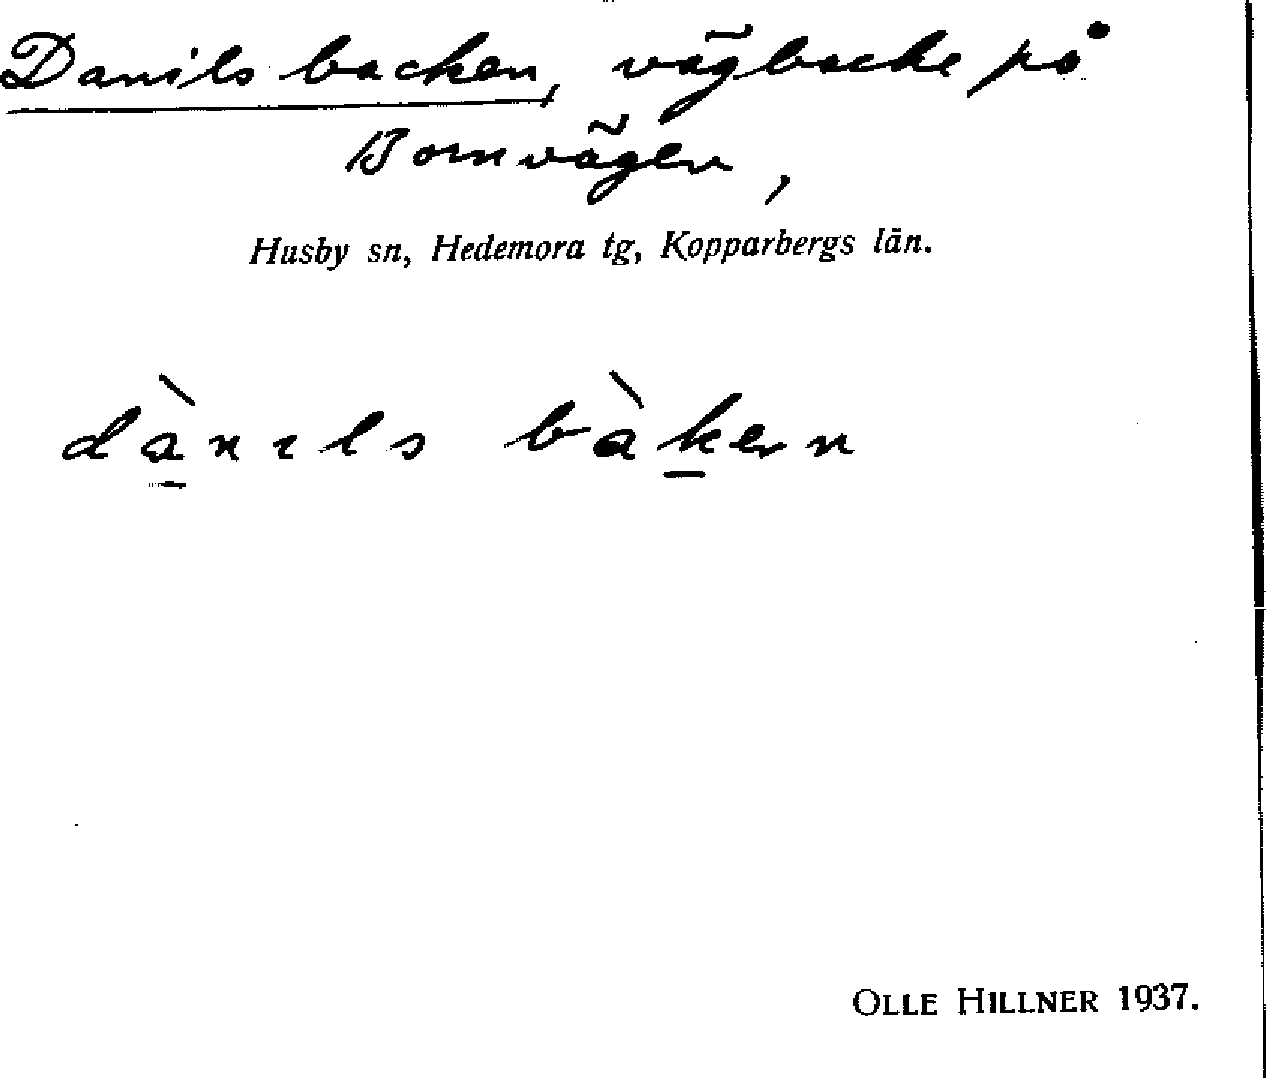 Danils backen, vägbacke på
Bornvägen,
Husby sn, Hedemora tg, Kopparbergs län.
dànɩls bàken
OLLE HILLNER 1937.